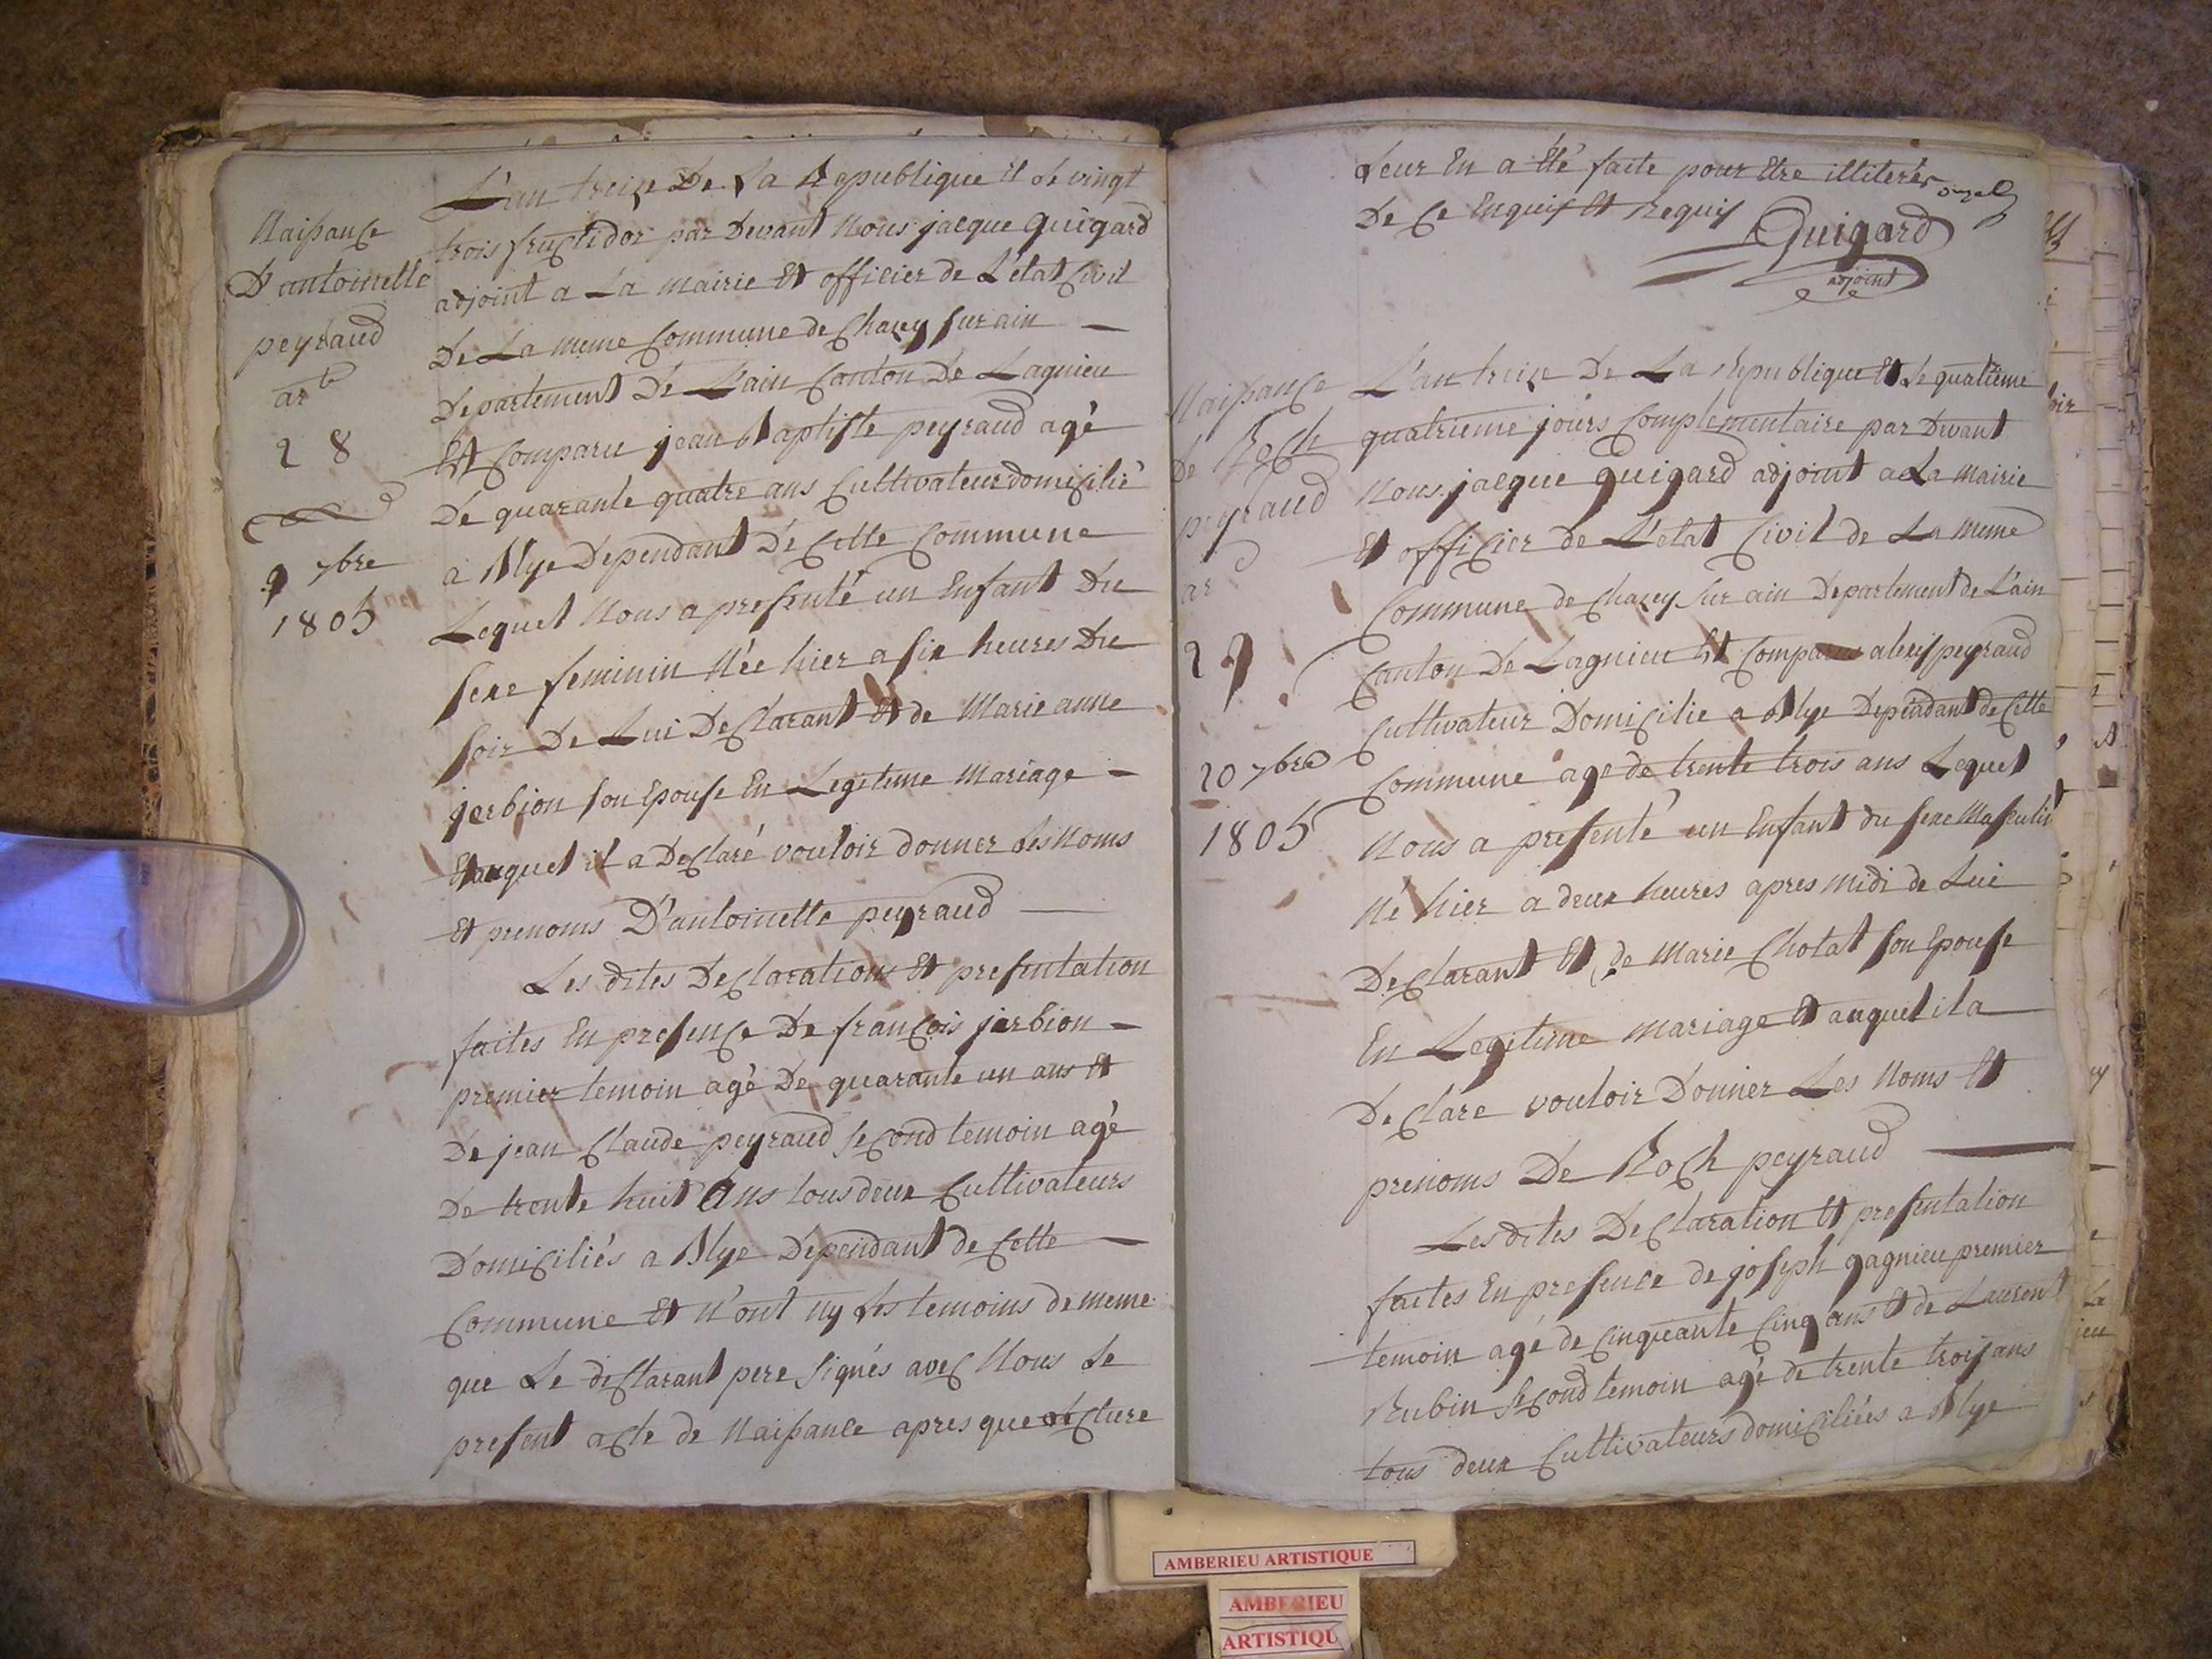 Naissance
D'antoinette
peyraud
art
28
9 7bre
1805
L'an treize De La Republique Et Le vingt
trois fructidor par Devant Nous jacque Guigard
adjoint a La mairie Et officier de L'etat Civil
De La meme Commune de Chazey sur ain
Departement De L'ain Canton De Lagnieu
Est Comparu jean Baptiste peyraud agé
De quarante quatre ans Cultivateur domicilié
a Blye Dependant De Cette Commune
Lequel Nous a presenté un Enfant Du
sexe feminin Née hier a six heures Du
soir De Lui Declarant Et de Marie anne
jerbion son Epouse En Legitime Mariage
Et auquel il a Declaré vouloir donner Les Noms
Et prenoms D'antoinette peyraud
Les dites Declarations Et presentation
faites En presence De françois jerbion
premier temoin agé De quarante un ans Et
De jean Claude peyraud second temoin agé
De trente huit Ans tous deux Cultivateurs
Domiciliés a Blye Dependant de Cette
Commune Et N'ont Ny Les temoins de meme
que Le declarant pere signés avec Nous Le
present acte de Naissance apres que Lecture
Leur En a Eté faite pour Etre illiterés
De Ce Enquis Et Requis
Guigard
adjoint
Naissance
de Roch
peyraud
ar
29
20 7bre
1805
L'an treize De La Republique Et Le quatrieme
quatrieme jours Complementaire par Devant
Nous jacque guigard adjoint a La mairie
Et officier de L'etat Civil de La meme
Commune de Chazey sur ain Departement de L'ain
Canton De Lagnieu Est Comparus alexis peyraud
Cultivateur Domicilie a Blye Dependant de Cette
Commune age de trente trois ans Lequel
Nous a presenté un Enfant du sexe Masculin
Né hier a deux heures apres midi de Lui
Declarant Et de Marie Chotat son Epouse
En Legitime mariage Et auquel il a
Declare vouloir Donner Les Noms Et
prenoms De Roch peyraud
Les dites Declaration Et presentation
faites En presence de joseph gagnieu premier
temoin agé de Cinquante Cinq ans Et de Laurent
Rubin second temoin agé de trente trois ans
tous deux Cultivateurs domiciliées a Blye
AMBERIEU ARTISTIQUE
AMBERIEU
ARTISTIQU